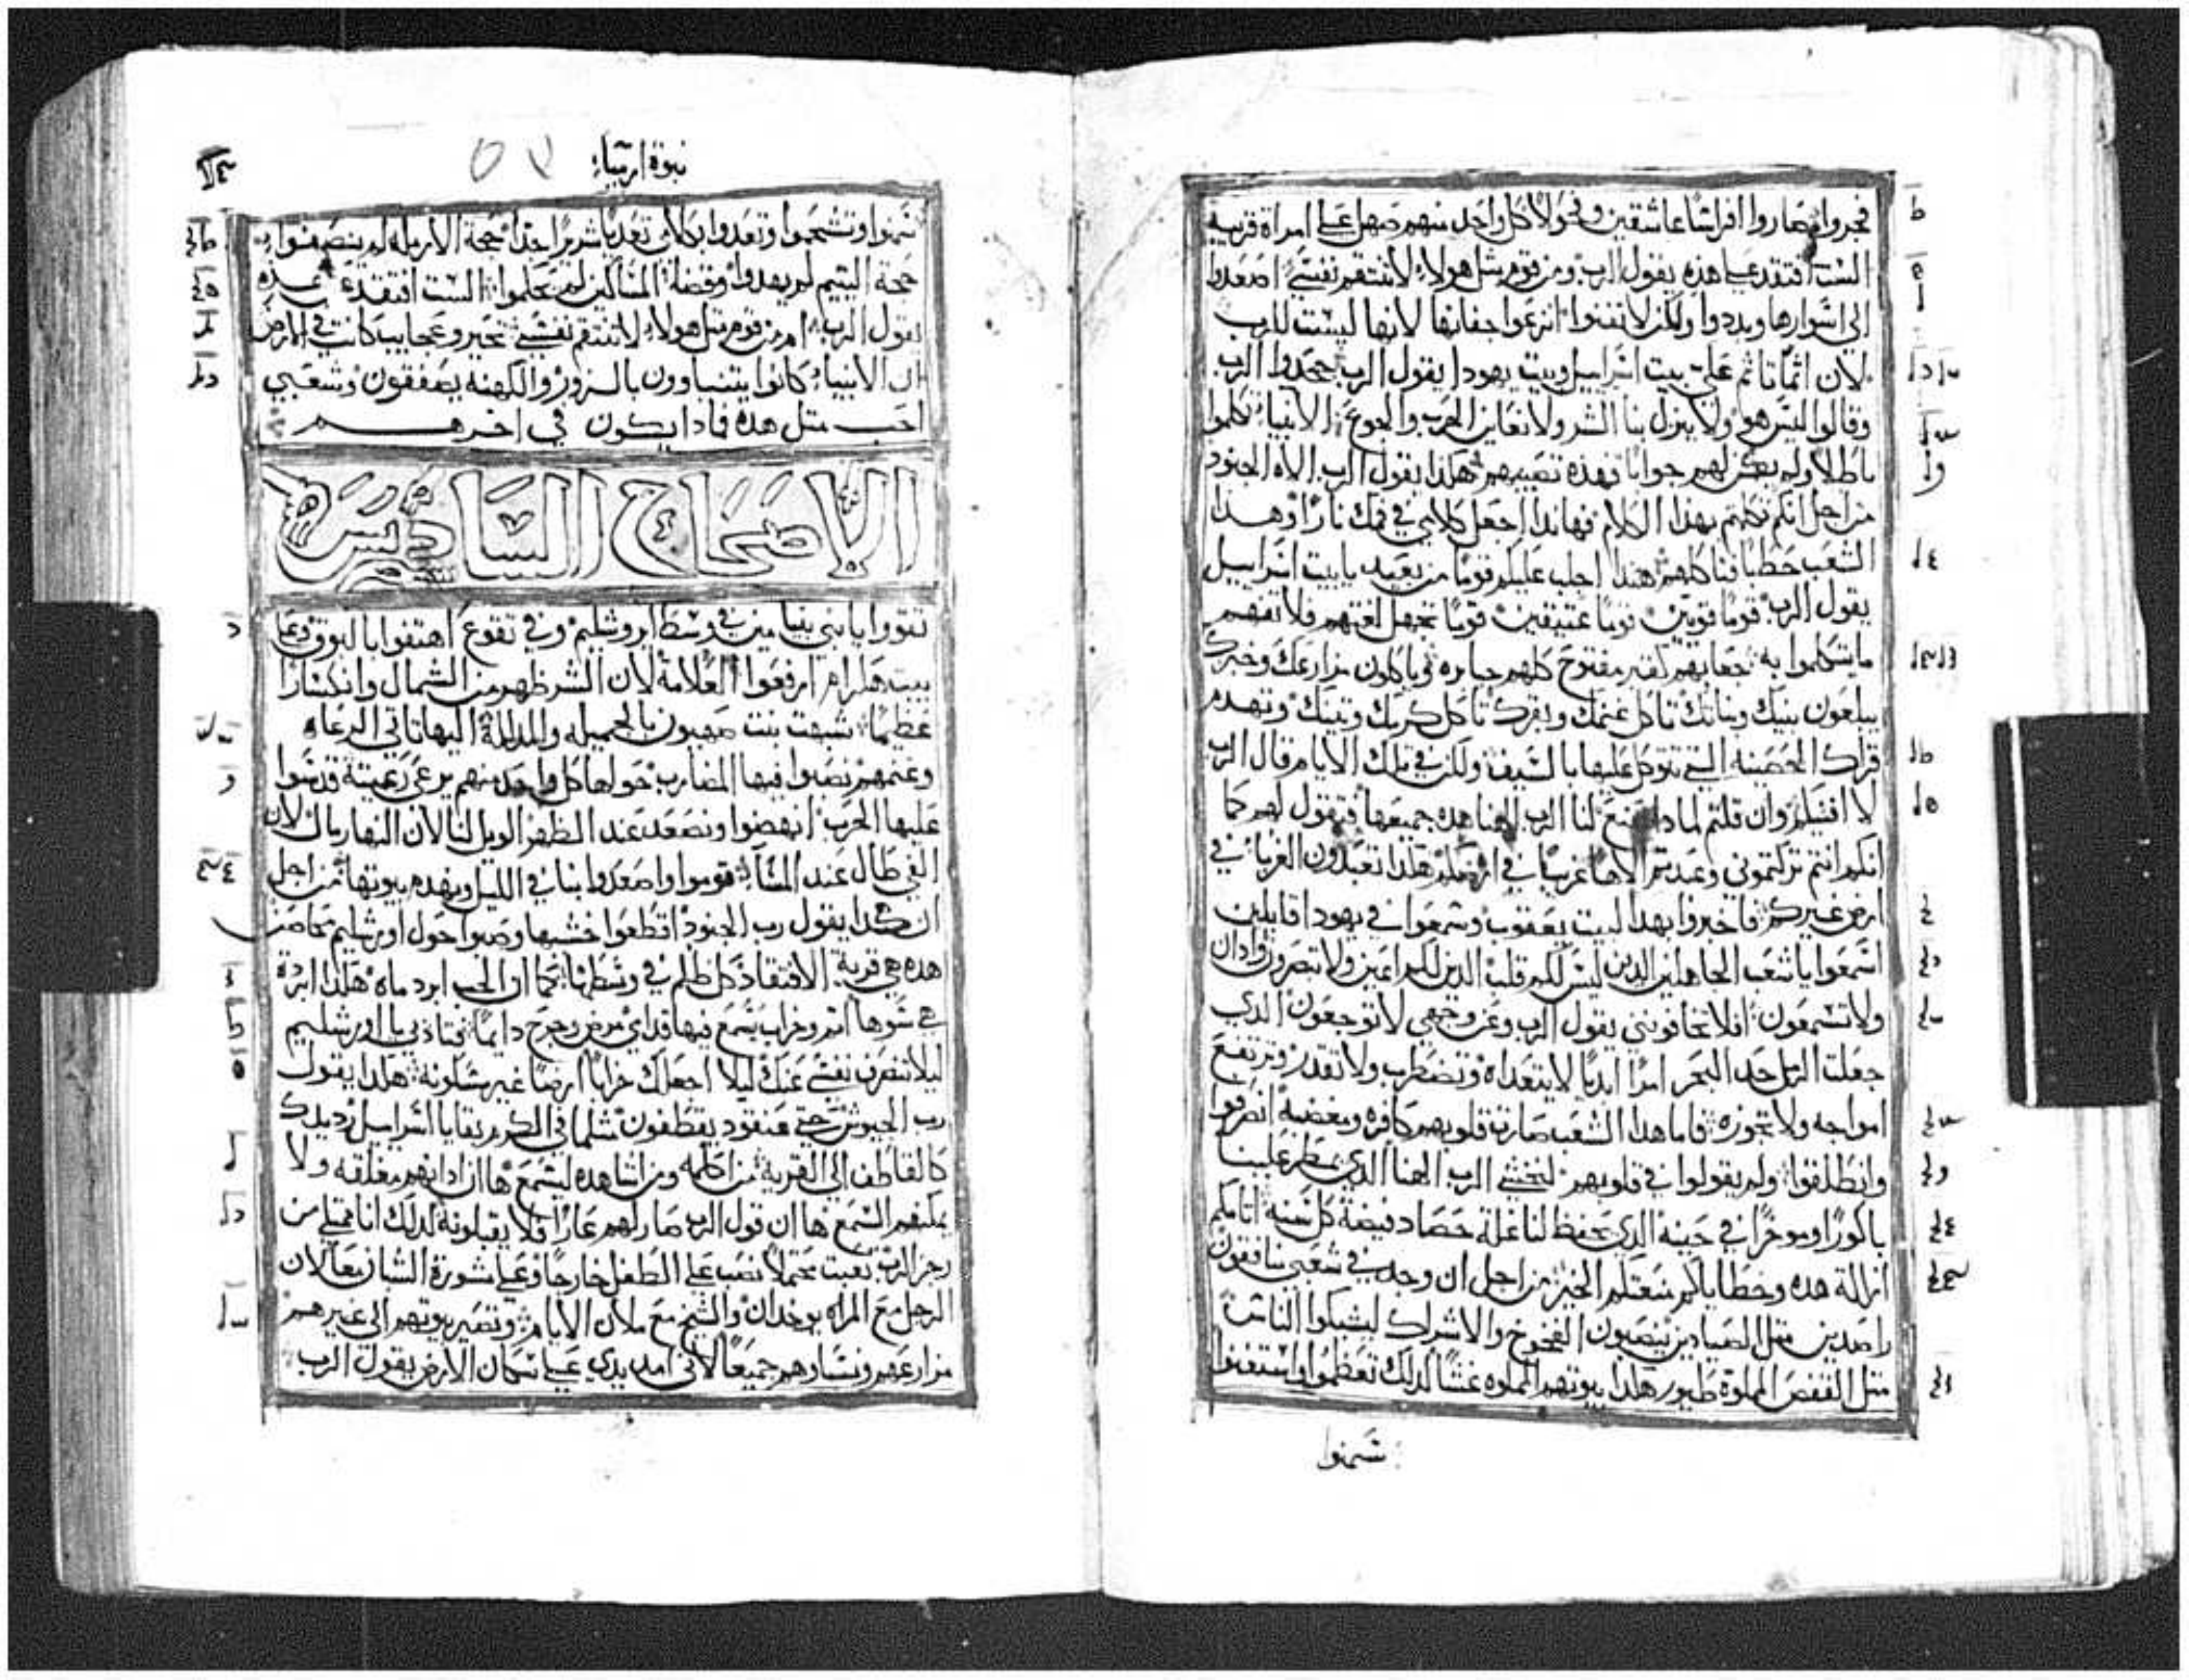 فجروا وصاروا افراسًا عاشقين وفحولا كل واحد منهم صهل على امراة قريبه
الست افتقد على هذه يقول الرب ومن قوم مثل هولاء لا تنتقم نفسي اصعدوا
الى اسوارها وبددوا ولكن لا تفنوا انزعوا جفانها لانها ليست للرب
لان اثمًا تاثم علي بيت اسراييل وبيت يهودا يقول الرب جحدوا الرب
وقالوا ليس هو ولا ينزل بنا الشر ولا نعاين الحرب والجوع الانبياء تكلموا
باطلا ولم يكن لهم جوابا فهذه تصيبهم هكذا يقول الرب الاه الجنود
من اجل انكم تكلمتم بهذا الكلام فهاندا اجعل كلامي في فمك نارًا وهذا
الشعب حطبا فتاكلهم هندا اجلب عليكم قومًا من بعيد يا بيت اسراييل
يقول الرب قومًا قويين قومًا عتيقين قومًا تجهل لغتهم فلا تفهم
ما يتكلموا به جعابهم كقبر مفتوح كلهم جبابره وياكلون مزارعك وخبزك
يبلعون بنيك وبناتك تاكل غنمك وبقرك تاكل كرمك وتينك وتهدم
قراك الحصينه التي تتوكل عليها بالسيف ولكن في تلك الايام قال الرب
لا افنيكم وان قلتم لمادا صنع لنا الرب الهنا هده جميعها فتقول لهم كما
انكم انتم تركتموني وعبدتم الاهًا غريبًا في ارضكم هكذا تعبدون الغربا في
ارض غيركم فاخبروا بهدا لبيت يعقوب وسمعوا في يهودا قايلين
اسمعوا يا شعب الجاهلين الدين ليس لكم قلب الدين لكم اعين ولا تبصرون وادان
ولا تسمعون افلا تخافونني يقول الرب وعن وجهي لا توجعون الدي
جعلت الرمل حد البحر امرًا ابديًا لا يتعداه وتضطرب ولا تقدر وترتفع
امواجه ولا تجوزه فاما هدا الشعب صارت قلوبهم كافره ومغضبه انصرفوا
وانطلقوا ولم يقولوا في قلوبهم لنخشي الرب الهنا الدي يمطر علينا
باكورًا وموخرًا في حينه الدي يحفظ لنا غلة حصاد فيضة كل سنه اتامكم
ازالة هده وخطاياكم منعتكم الخير من اجل ان وجد في شعبي منافقون
راصدين مثل الصيادين ينصبون الفخوخ والاشراك ليمسكوا الناس
مثل القفص المملوة طيور هكدا بيوتهم المملوه غشًا لدلك تعظموا واستغنوا
سمنوا
نبوة ارمياء
سمنوا وتشحموا وتعدوا بكلامي تعديًا شريرًا جدا حجة الارمله لم ينصفوا
حجة اليتيم لم يهدوا وقضا المساكين لم يحكموا الست افتقد علي هده
يقول الرب ام من قوم مثل هولاء لا تنتقم نفسي تحير وعجايب كانت في الارض
ان الانبياء كانوا يتنباوون بالزور والكهنه يصفقون وشعبي
احب مثل هده فمادا يكون في اخرهم
الاصحاح السادس
تقووا يا بني بنيامين في وسط اوروشليم وفي تقوع اهتفوا بالبوق وعلي
بيت هكرام ارفعوا العلامة لان الشر ظهر من الشمال وانكسارًا
عظيمًا شبهت بنت صهيون بالجميله والمدللة اليها تاتي الرعاه
وغنمهم نصبوا فيها المضارب حولها كل واحد منهم يرعى رعيته قدسوا
عليها الحرب انهضوا ونصعد عند الظهر الويل لنا لان النهار مال لان
الفي طال عند المسا قوموا واصعدوا بنا في الليل ونهدم بيوتها من اجل
ان هكدا يقول رب الجنود اقطعوا خشبها وصبوا حول اورشليم محاصر
هده هي قرية الافتقاد كل ظلم في وسطها كما ان الجب ابرد ماه هكذا ابردة
هي سوها اثم وخراب يسمع فيها قدامي مرض وجرح دايمًا فتادبي يا اورشليم
ليلا تنصرف نفسي عنك ليلا اجعلك خرابا ارضًا غير مسكونة هكدا يقول
رب الجيوش حتي عنقود يقطفون مثلما في الكرم بقايا اسراييل رد يدك
كالقاطف الي القرية من اكلمه ومن اشاهده ليسمع ها ان ادانهم مغلقه ولا
يمكنهم السمع ها ان قول الرب صار لهم عارًا فلا يقبلونه لدلك انا ممتلي من
رجز الرب تعبت محتملا نصب علي الطفل خارجًا وعلي مشورة الشبان معًا لان
الرجل مع المراه يوخدان والشيخ مع ملان الايام وتصير بيوتهم الي غيرهم
مزارعهم ونساوهم جميعًا لاني امد يدي علي سكان الارض يقول الرب